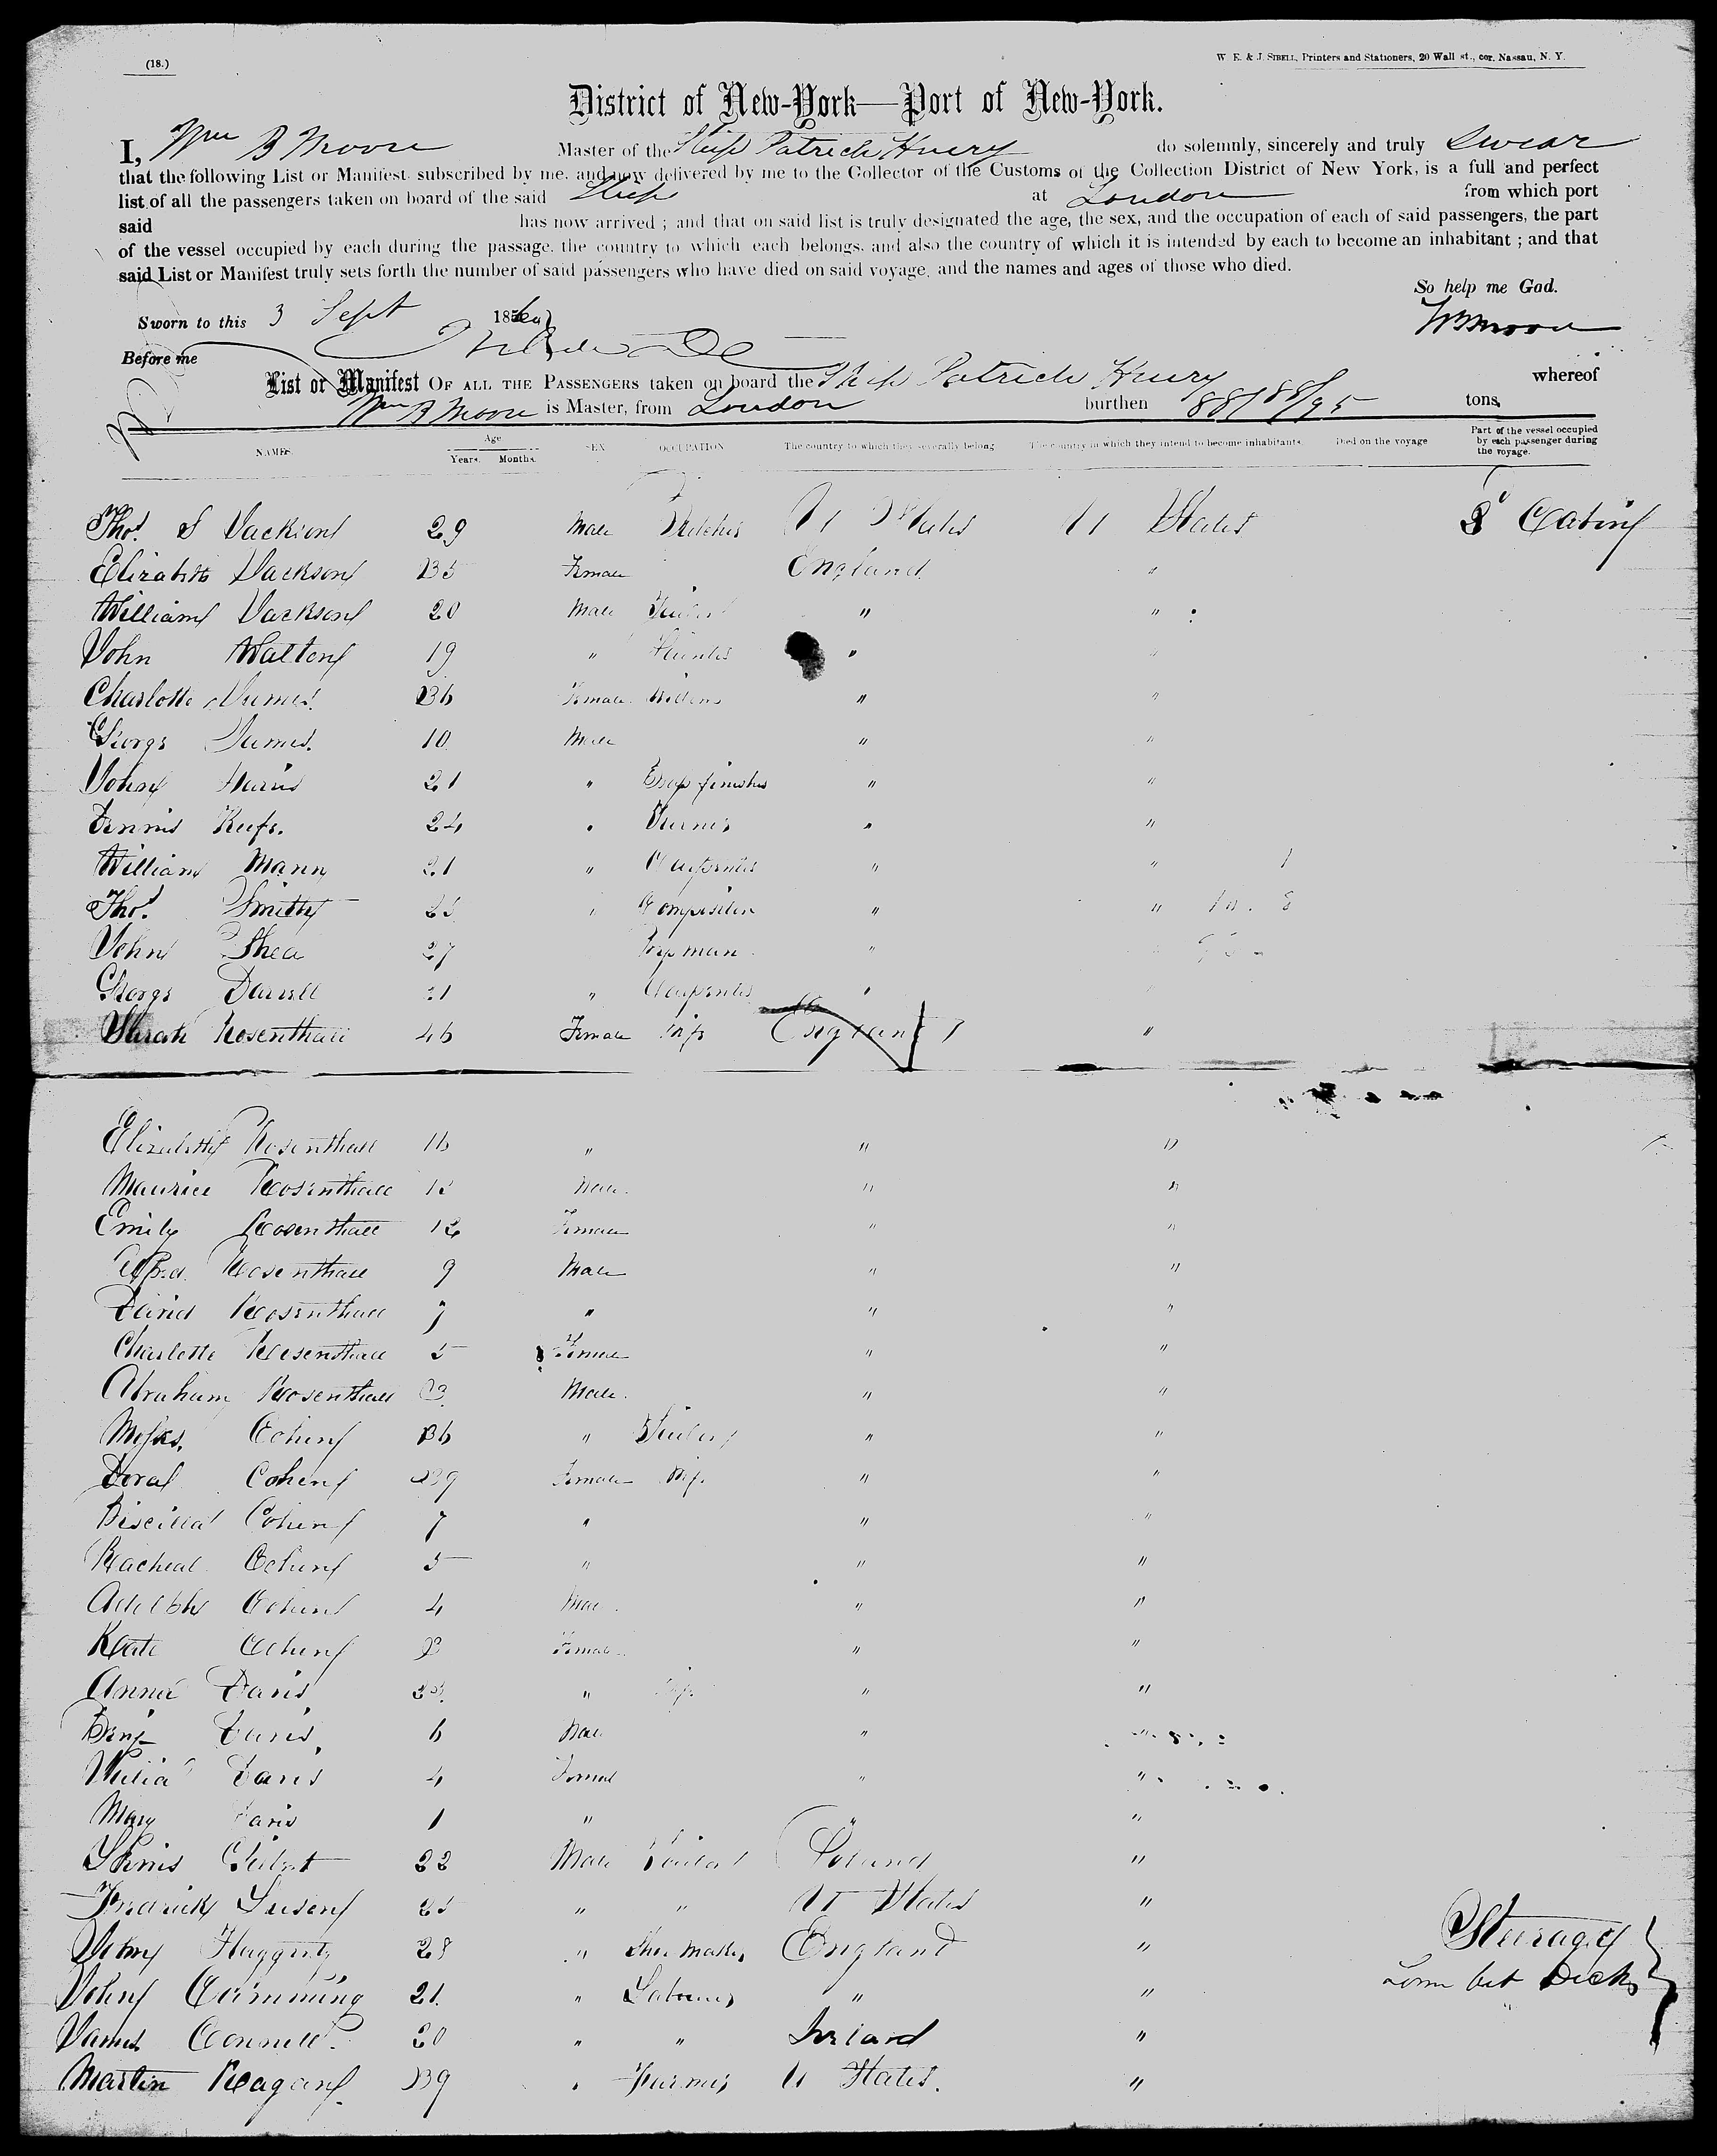 (18.)
W. E. & J. SIBELL, Printers and Stationers, 20 Wall st., cor. Nassau, N. Y.
District of New-York—Port of New-York.
I, Wm B Moore Master of the Ship Patrick Henry do solemnly, sincerely and truly swear
that the following List or Manifest subscribed by me, and now delivered by me to the Collector of the Customs of the Collection District of New York, is a full and perfect
list of all the passengers taken on board of the said Ship at London from which port
said has now arrived ; and that on said list is truly designated the age, the sex, and the occupation of each of said passengers, the part
of the vessel occupied by each during the passage, the country to which each belongs, and also the country of which it is intended by each to become an inhabitant ; and that
said List or Manifest truly sets forth the number of said passengers who have died on said voyage, and the names and ages of those who died.
So help me God.
Sworn to this 3 Sept 18
WB Moore
Before me
List or Manifest OF ALL THE PASSENGERS taken on board the Ship Patrick Henry whereof
Wm B Moore is Master, from London burthen 881 88/95 tons
NAMES. Age Years. Months. SEX OCCUPATION The country to which they severally belong The country in which they intend to become inhabitants. Died on the voyage Part of the vessel occupied by each passenger during the voyage.
Thos. S Jackson 29 Male Butcher U States U States 2d Cabin
Elizabeth Jackson 35 Female England "
William Jackson 20 Male " "
John Walton 19 " " "
Charlotte James 36 Female " "
George James 10 Male " "
John 21 " finisher " "
Dennis Keefe 24 " " "
William Mann 21 " Carpenter " "
Thos. Smith 25 " Compositor " "
John Shea 27 " "
George Darrell 21 " Carpenter " "
Sarah Rosenthall 46 Female Wife England "
Elizabeth Rosenthall 16 " " "
Maurice Rosenthall Male " "
Emily Rosenthall 12 Female " "
Rosenthall 9 Male " "
David Rosenthall 7 " " "
Charlotte Rosenthall 5 Female " "
Abraham Rosenthall 3 Male " "
Moses Cohen 36 " Tailor " "
Cohen 39 Female Wife " "
Priscilla Cohen 7 " " "
Racheal Cohen 5 " " "
Adolph Cohen 4 Male " "
Kate Cohen Female " "
Anna Davis " Wife " "
Benj Davis 6 Male " "
Julia Davis 4 Femal " "
Mary Davis 1 " " "
22 Male Tailor Poland "
Fredrick 25 " " U States "
John Haggerty 28 " Shoe Maker England "
John Cumming 21 " Labourer " "
James Connell 20 " " Ireland "
Martin Reagan 39 " Farmer U States "
Steerage
Low bet Decks